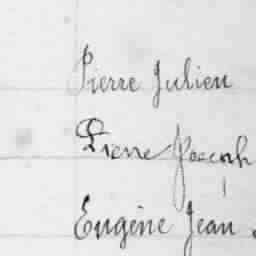 Pierre Julien
Pierre Joseph
Eugène Jean